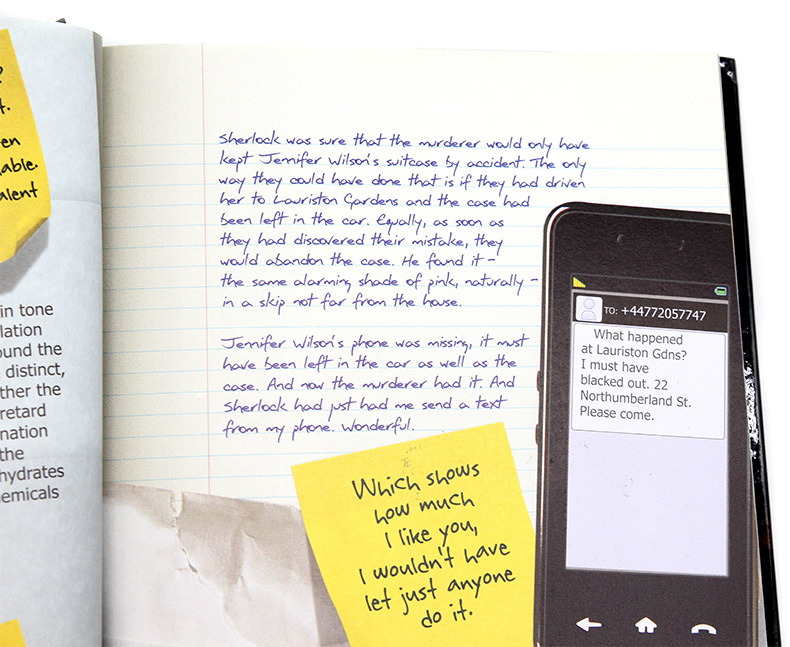 ?
t.
en
able.
alent
in tone
lation
ound the
distinct,
ther the
retard
nation
the
hydrates
emicals
Sherlock was sure that the murderer would only have
kept Jennifer Wilson's suitcase by accident. The only
way they could have done that is if they had driven
her to Lauriston Gardens and the case had
been left in the car. Equally, as soon as
they had discovered their mistake, they
would abandon the case. He found it –
the same alarming shade of pink, naturally –
in a skip not far from the house.
Jennifer Wilson's phone was missing, it must
have been left in the car as well as the
case. And now the murderer had it. And
Sherlock had just had me send a text
from my phone. Wonderful.
Which shows
how much
I like you,
I wouldn't have
let just anyone
do it.
TO: +44772057747
What happened
at Lauriston Gdns?
I must have
blacked out. 22
Northumberland St.
Please come.